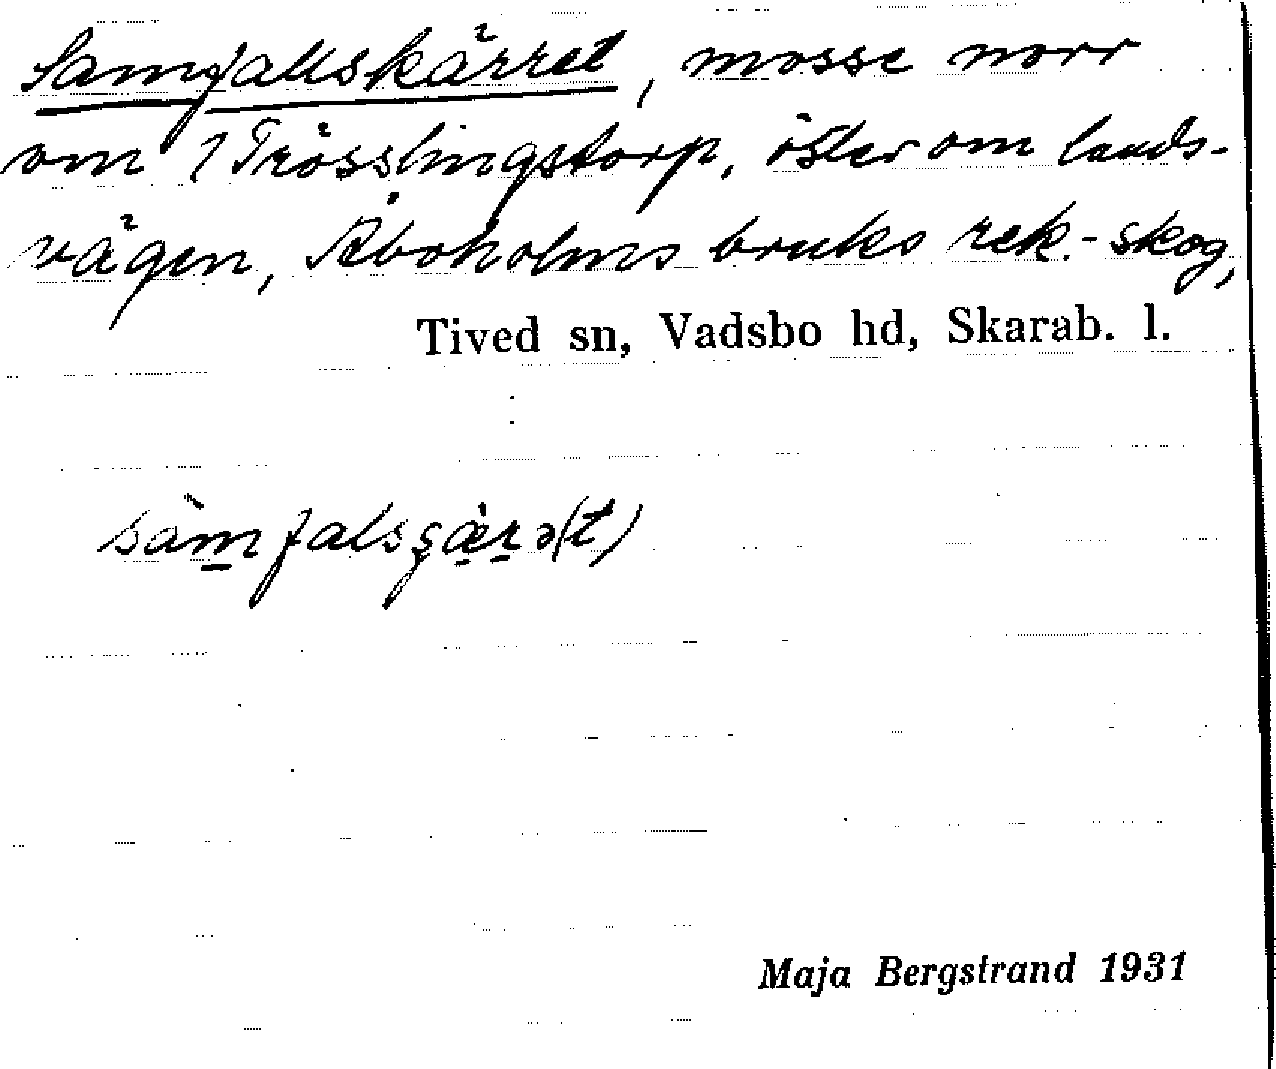 Samfallskärret, mosse norr
om 1 Trösslingstorp, öster om lands-
vägen, Åboholms bruks rek.-skog,
Tived sn, Vadsbo hd, Skarab. l.
sàmfalsçærə(t)
Maja Bergstrand 1931